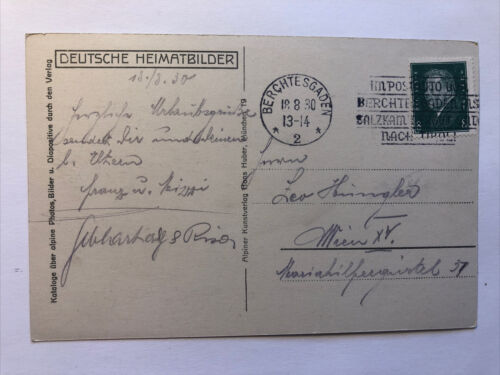 DEUTSCHE HEIMATBILDER
18./8.30
Herzliche Urlaubsgrüße
sendet Dir und Deinen
l. Eltern
Franz u. Mizzi
Kataloge über alpine Photos, Bilder u. Diapositive durch den Verlag
Alpiner Kunstverlag Hans Huber, München 19
BERCHTESGADEN
18.8.30
13-14
* 2 *
IM POSTAUTO
BERCHTESGADEN
SALZKAM
NACH TIROL
Herrn
Leo
Wien XV.
Mariahilfergürtel 37